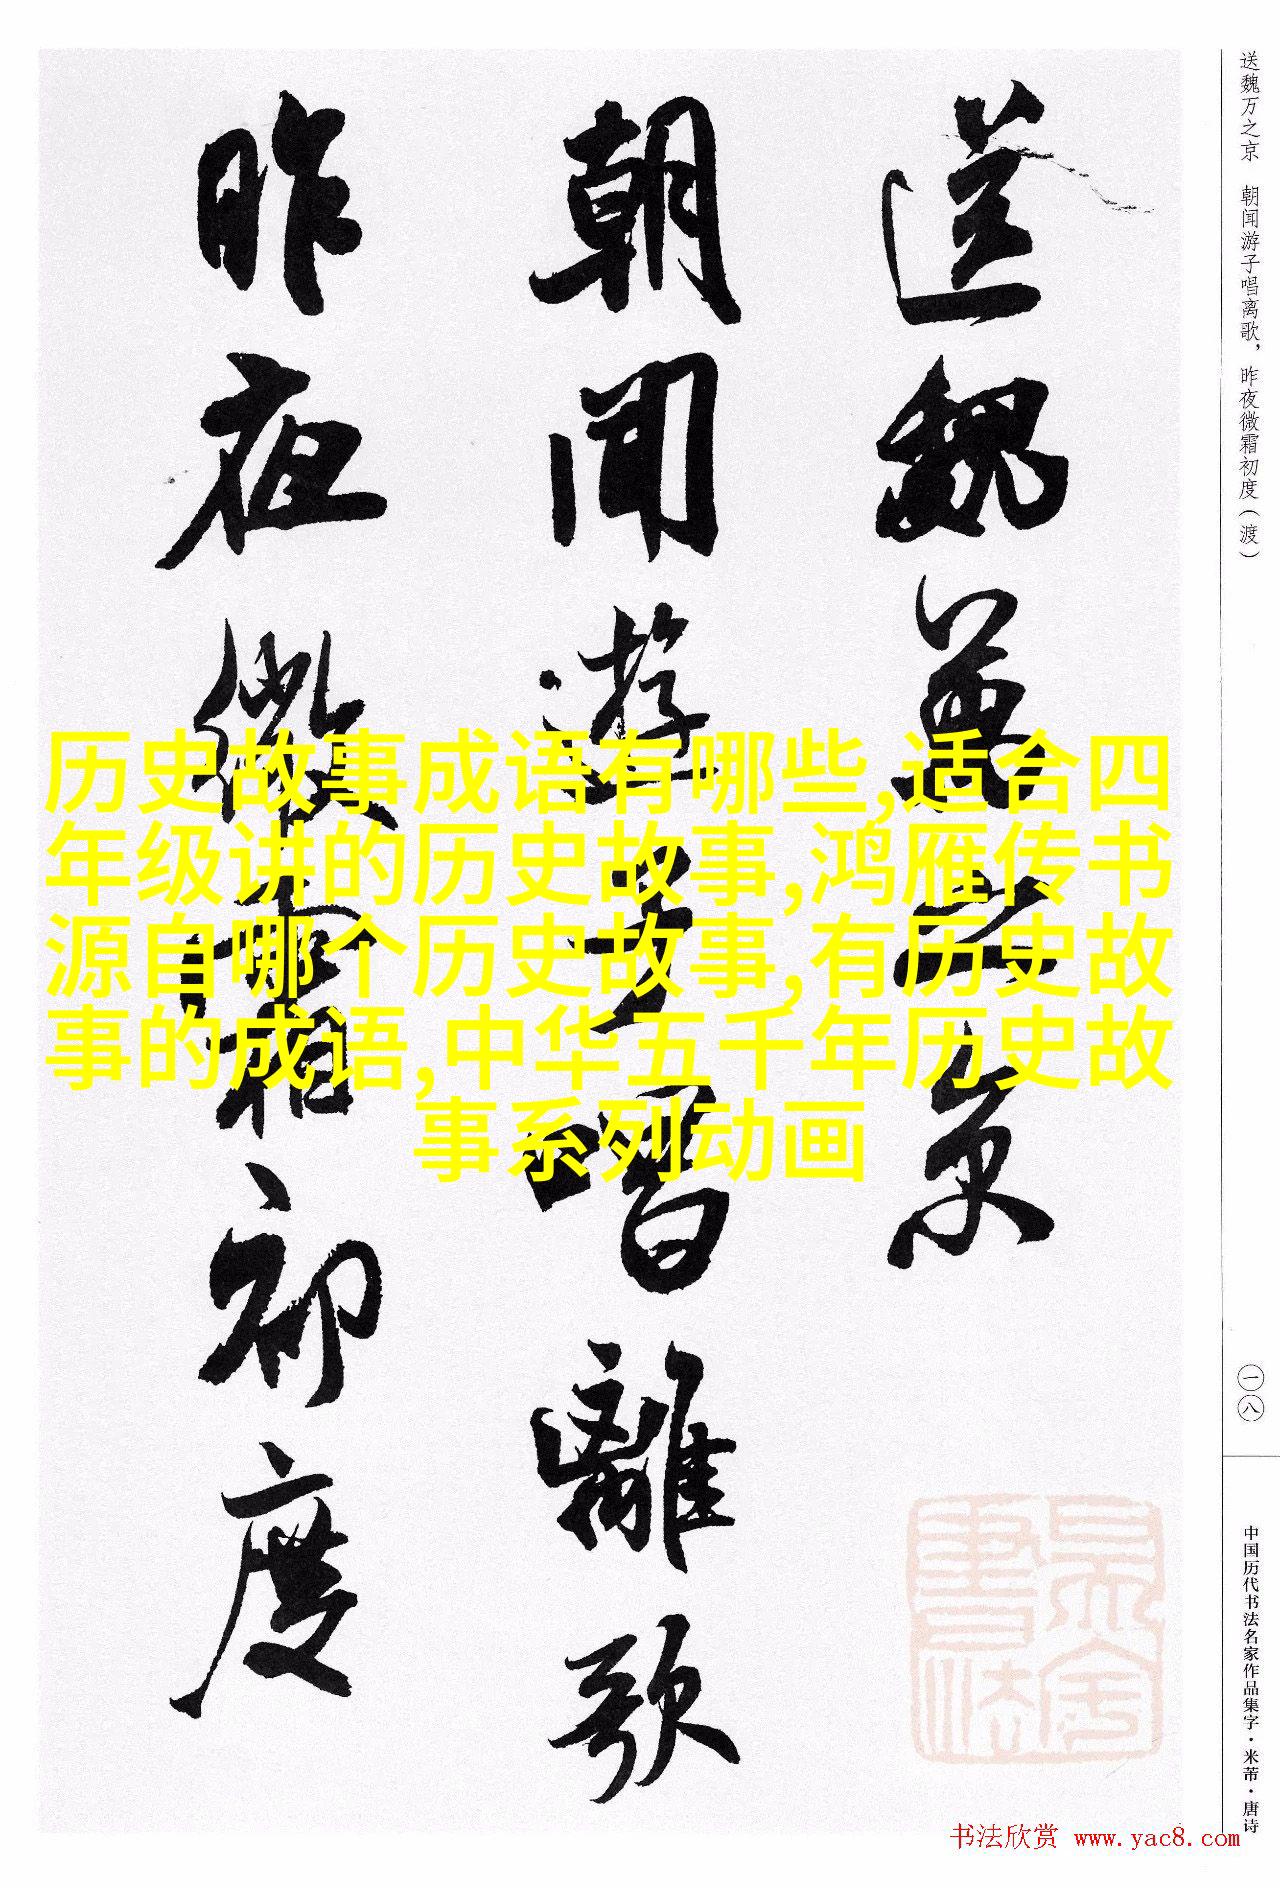 送魏萬之京
朝聞遊子唱離歌
昨夜微霜初度
历史故事成语有哪些,适合四
年级讲的历史故事,鸿雁传书
源自哪个历史故事,有历史故
事的成语,中华五千年历史故
事系列动画
送魏万之京 朝闻游子唱离歌，昨夜微霜初度（渡）
一八
中国历代书法名家作品集字·米芾·唐诗
书法欣赏 www.yac8.com